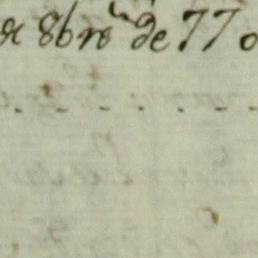 8bre de 770